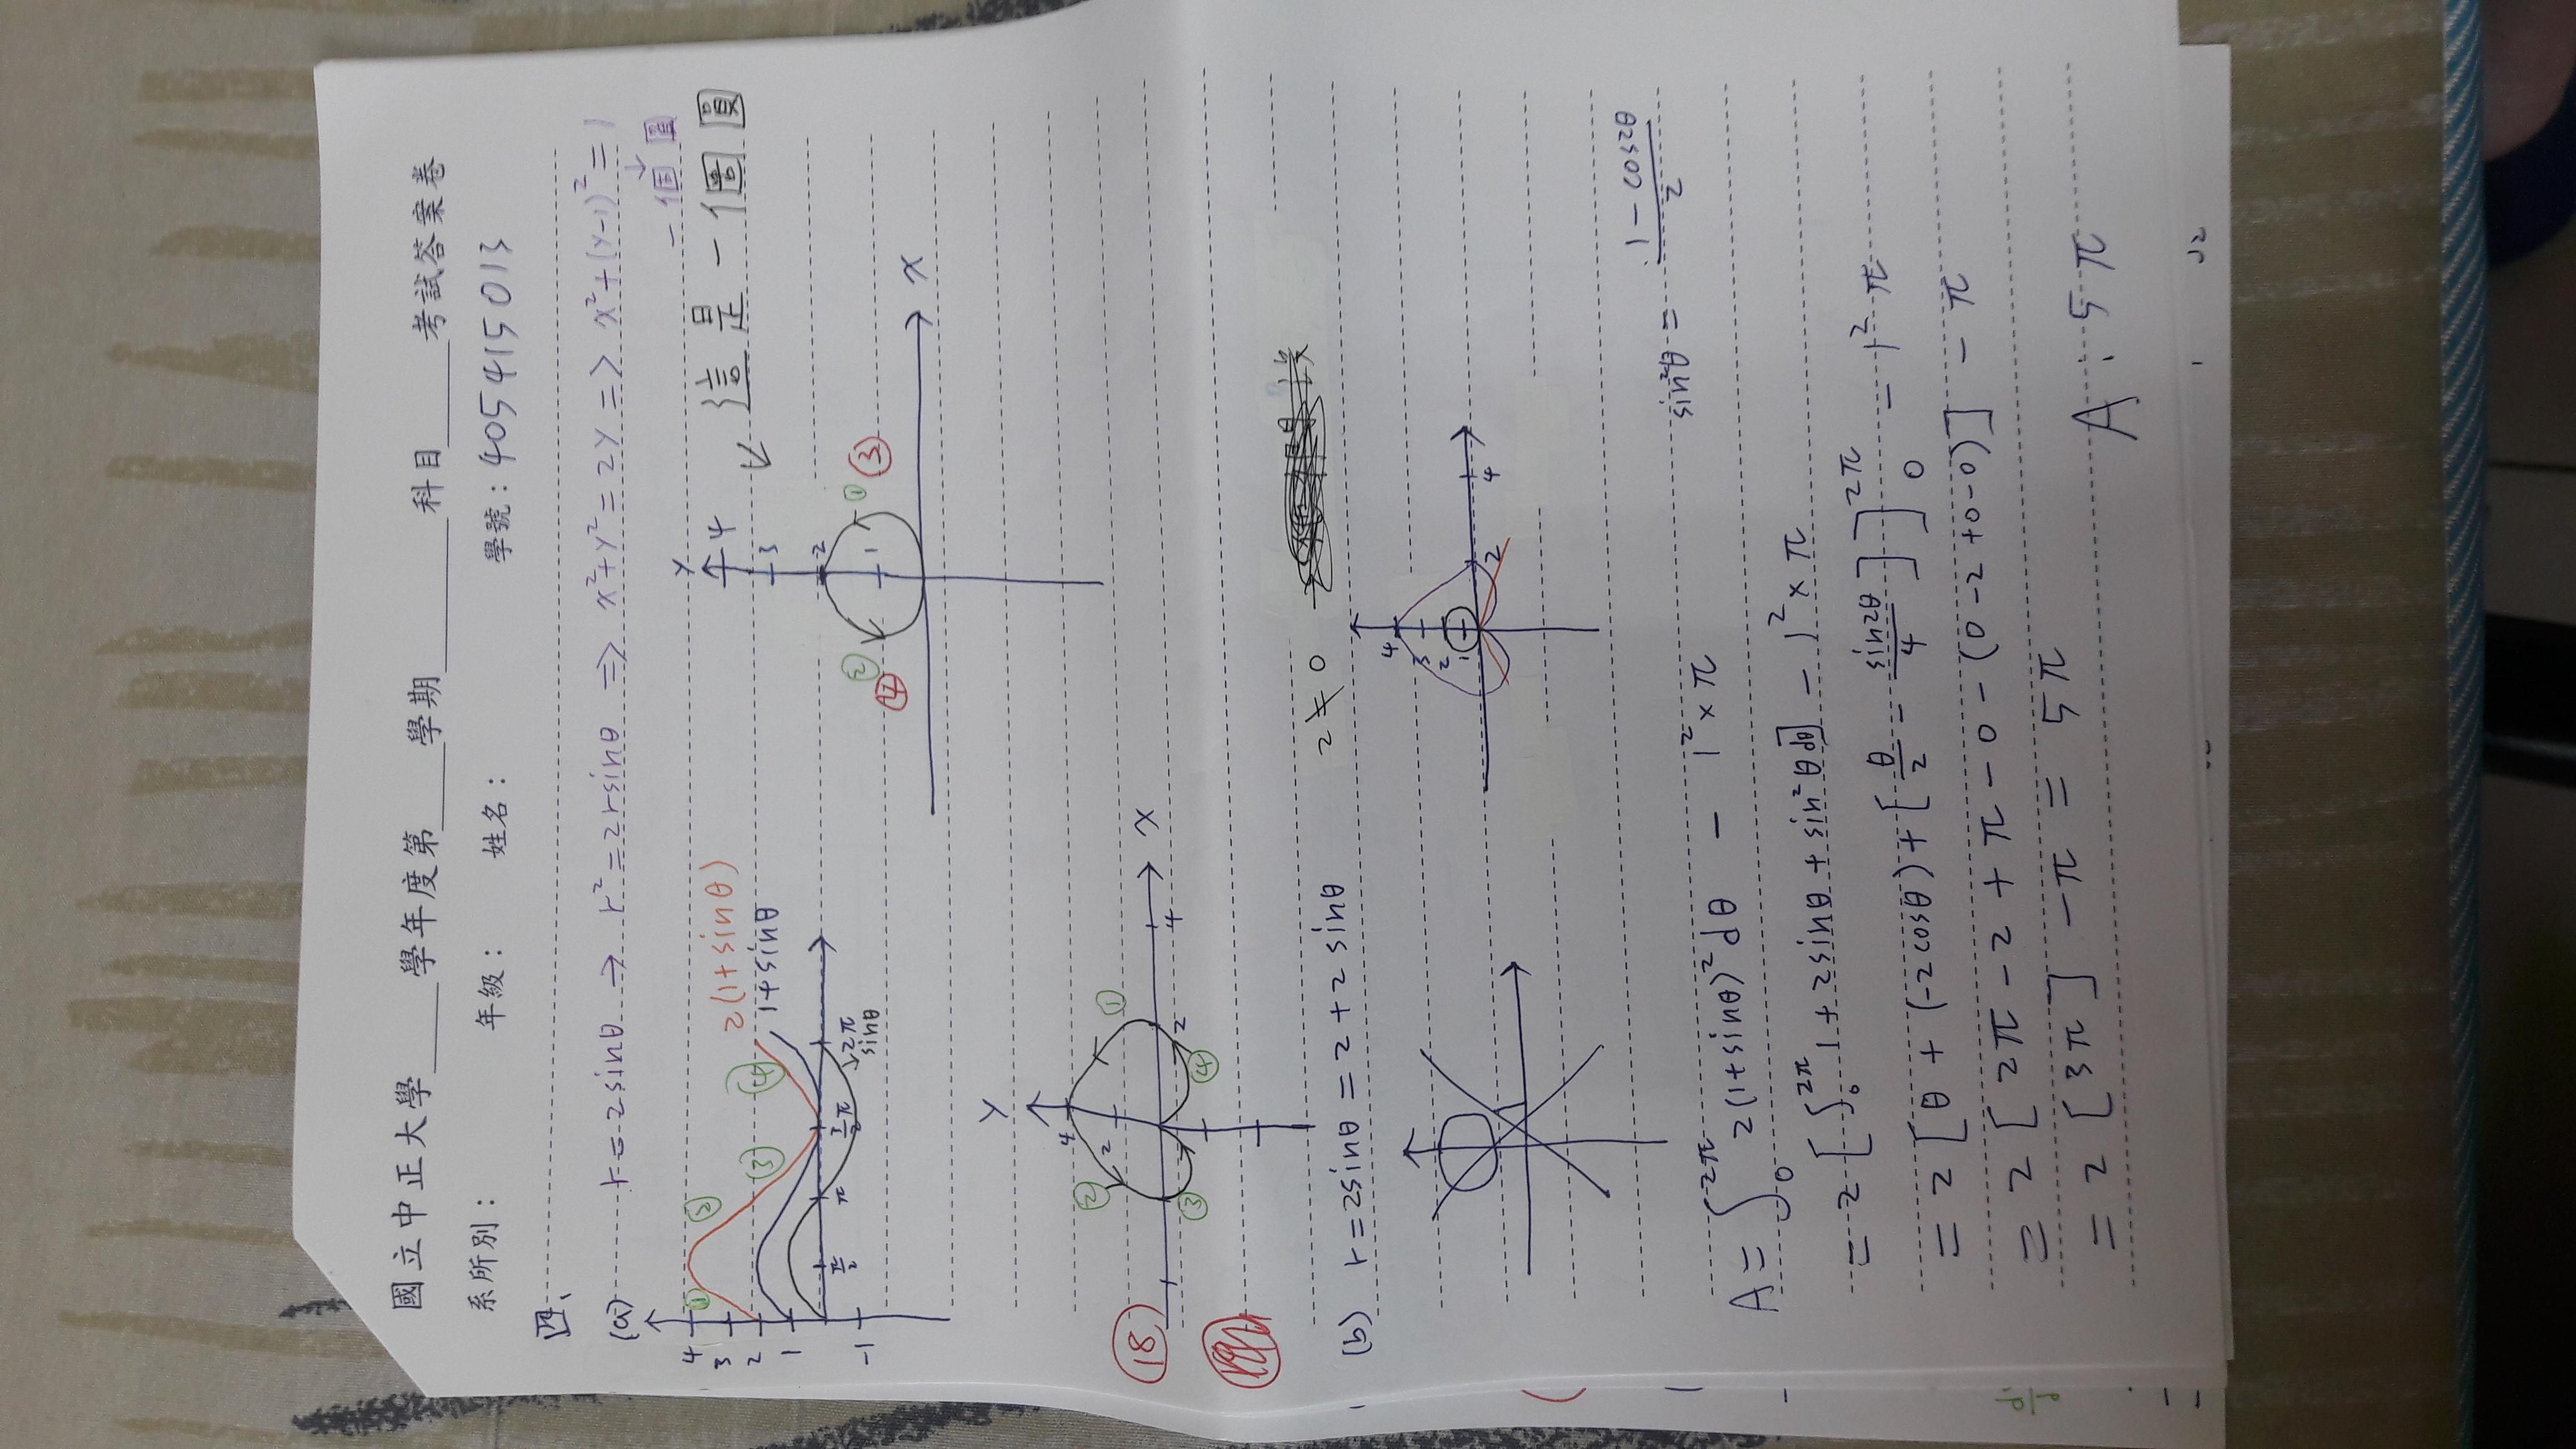 國立中正大學____學年度第____學期________科目_____考試答案卷
系所別： 年級： 姓名： 學號：405415013
四、
(a) r=2sinθ → r²=2rsinθ => x²+y²=2y => x²+(y-1)²=1
↓
一個圓
4 ① ② 2(1+sinθ)
3 ③ ④ 1+sinθ
2
1
π/2 π 3/2π 2π
-1 sinθ
Y
4 ↙ 這是一個圓
3
2
② ① ③
④ 1
X
Y
4
② 2 ①
18 X
③ ④ 2 4
(b) r=2sinθ=2+2sinθ 2≠0
4
3
2
1
2 4
sin²θ = (1-cos2θ)/2
A = ∫₀^2π 2(1+sinθ)²dθ - 1²×π
= 2[∫₀^2π 1+2sinθ+sin²θdθ] - 1²×π
= 2[θ+(-2cosθ)+[θ/2 - sin2θ/4]]₀^2π - 1²π
= 2[2π-2+π-0-(0-2+0-0)] - π
= 2[3π] - π = 5π
A：5π